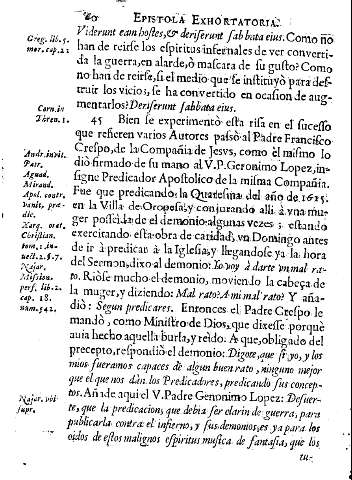 60 EPISTOLA EXHORTATORIA.
Viderunt eam hostes, & deriserunt sabbata eius. Como no
han de reirse los espiritus infernales de ver converti-
da la guerra, en alarde, ò mascara de su gusto? Como
no han de reirse, si el medio que se instituyò para des-
truir los vicios, se ha convertido en ocasion de aug-
mentarlos? Deriserunt sabbata eius.
45 Bien se experimentò esta risa en el sucesso
que refieren varios Autores passò al Padre Francisco
Crespo, de la Compañia de Jesvs, como èl mismo lo
diò firmado de su mano al V.P. Geronimo Lopez, in-
signe Predicador Apostolico de la misma Compañia.
Fue que predicando la Quaresma del año de 1625.
en la Villa de Oropesa, y conjurando alli à vna mu-
ger posseida de el demonio algunas vezes; estando
exercitando esta obra de caridad, vn Domingo antes
de ir à predicar à la Iglesia, y llegandose ya la hora
del Sermon, dixo al demonio: Io voy à darte vn mal ra-
to. Riòse mucho el demonio, moviendo la cabeça de
la muger, y diziendo: Mal rato? A mi mal rato? Y aña-
diò: Segun predicares. Entonces el Padre Crespo le
mandò, como Ministro de Dios, que dixesse porquè
auia hecho aquella burla, y reìdo. A que, obligado del
precepto, respondiò el demonio: Digote, que si yo, y los
mios fueramos capaces de algun buen rato, ninguno mejor
que el que nos dàn los Predicadores, predicando sus concep-
tos. Añade aqui el V. Padre Geronimo Lopez: De suer-
te, que la predicacion, que debia ser clarin de guerra, para
publicarla contra el infierno, y sus demonios, es ya para los
oidos de estos malignos espiritus musica de fantasia, que los
tu-
Greg. lib. 5.
mor. cap. 22
Carn. in
Thren. 1.
Andr. in vit.
Patr.
Aguad.
Mirand.
Apol. contr.
vanit. præ-
dic.
Xarq. orat.
Christian.
tom. 1. in-
vect. 2. §. 7.
Naxar.
Mission.
perf. lib. 2.
cap. 18.
num. 542.
Naxar. vbi
supr.